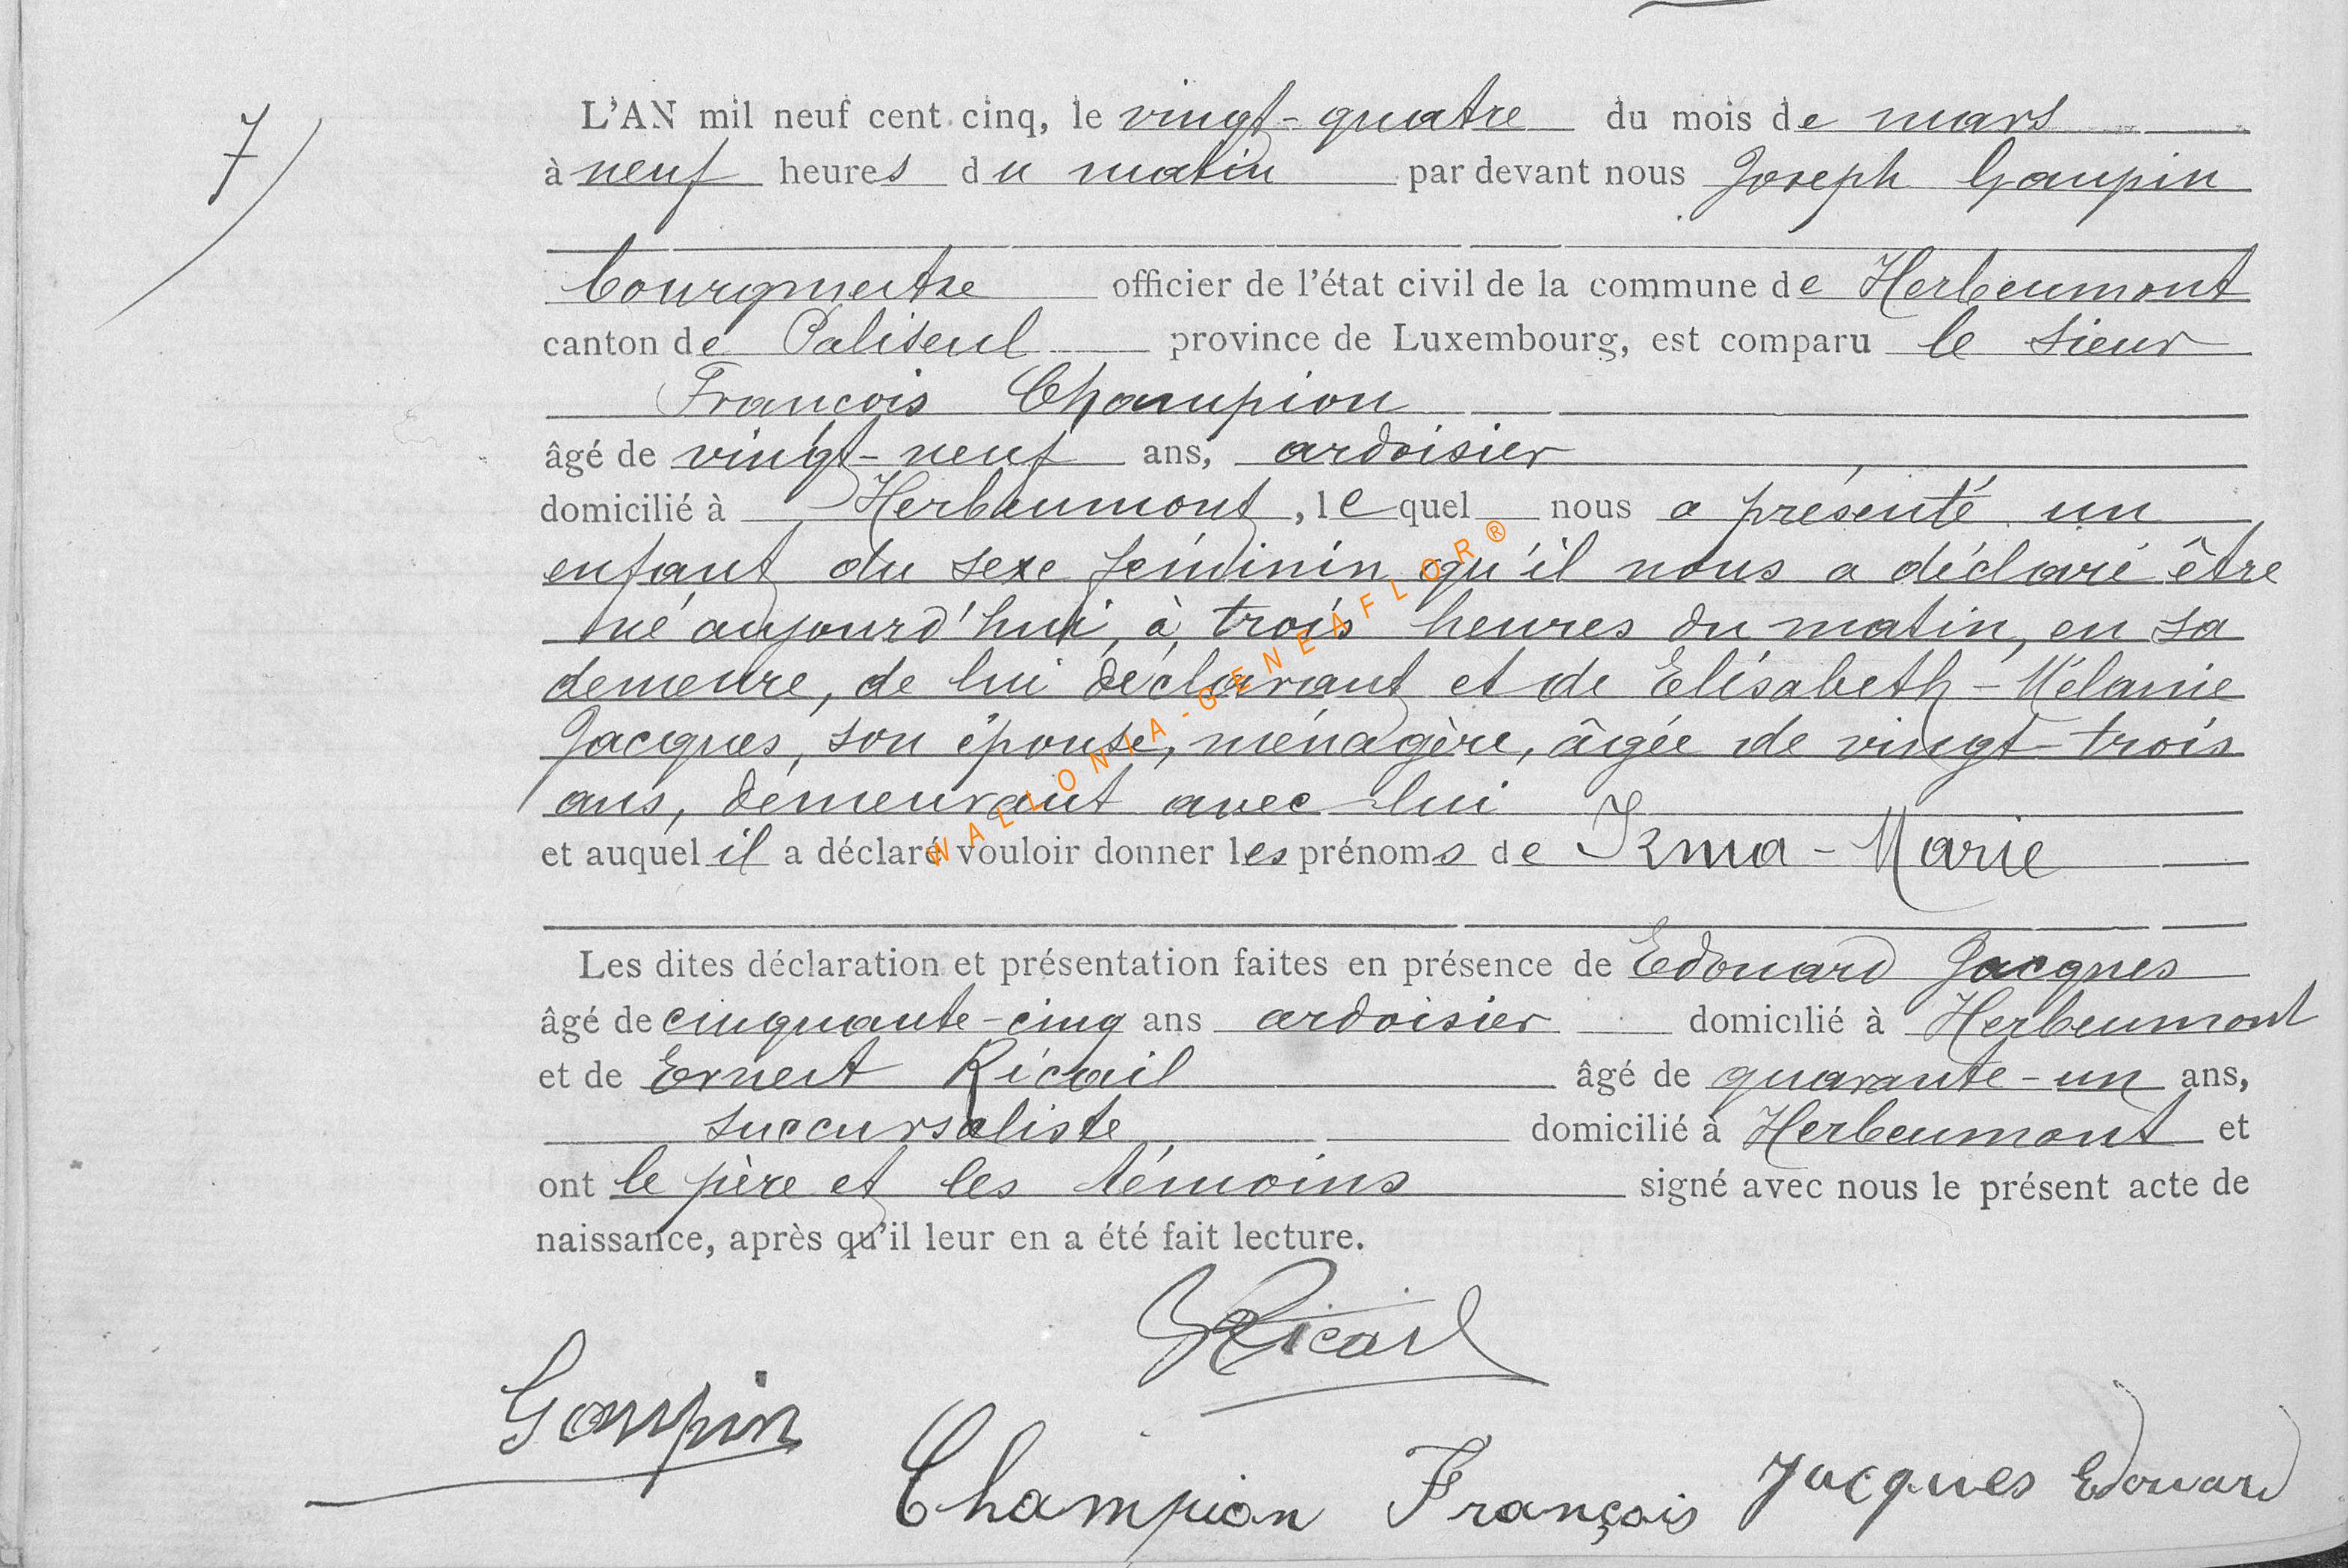 7)
L'AN mil neuf cent cinq, le vingt-quatre du mois de mars
à neuf heures du matin par devant nous Joseph Gaupin
bourgmestre officier de l'état civil de la commune de Herbeumont
canton de Paliseul province de Luxembourg, est comparu le sieur
François Champion
âgé de vingt-neuf ans, ardoisier
domicilié à Herbeumont, lequel nous a présenté un
enfant du sexe féminin qu'il nous a déclaré être
né aujourd'hui, à trois heures du matin, en sa
demeure, de lui déclarant et de Elisabeth-Mélanie
Jacques, son épouse, ménagère, âgée de vingt-trois
ans, demeurant avec lui
et auquel il a déclaré vouloir donner les prénoms de Irma-Marie
Les dites déclaration et présentation faites en présence de Edouard Jacques
âgé de cinquante-cinq ans ardoisier domicilié à Herbeumont
et de Ernest Ricail âgé de quarante-un ans,
succursaliste domicilié à Herbeumont et
ont le père et les témoins signé avec nous le présent acte de
naissance, après qu'il leur en a été fait lecture.
ERicail
Gaupin
Champion François Jacques Edouard
WALLONIA-GENEAFLOR®